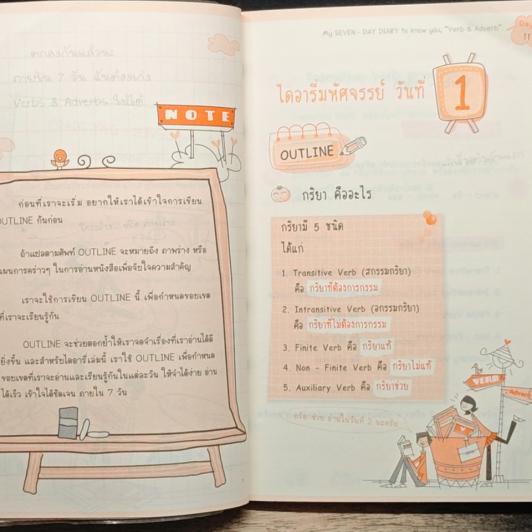 ตกลงกันแล้วนะ
ภายใน 7 วัน ฉันต้องเก่ง
Verbs & Adverbs ให้ได้
NOTE
ก่อนที่เราจะเริ่ม อยากให้เราได้เข้าใจการเขียน
OUTLINE กันก่อน
ถ้าแปลตามศัพท์ OUTLINE จะหมายถึง ภาพร่าง หรือ
แผนการคร่าวๆ ในการอ่านหนังสือเพื่อจับใจความสำคัญ
เราจะใช้การเขียน OUTLINE นี้ เพื่อกำหนดขอบเขต
ที่เราจะเรียนรู้กัน
OUTLINE จะช่วยตอกย้ำให้เราจดจำเรื่องที่เราอ่านได้ดี
ยิ่งขึ้น และสำหรับไดอารี่เล่มนี้ เราใช้ OUTLINE เพื่อกำหนด
ขอบเขตที่เราจะอ่านและเรียนรู้กันในแต่ละวัน ให้จำได้ง่าย อ่าน
ได้เร็ว เข้าใจได้ชัดเจน ภายใน 7 วัน
My SEVEN - DAY DIARY to know you, "Verb & Adverb"
Day
11
ไดอารี่มหัศจรรย์ วันที่ 1
OUTLINE
กริยา คืออะไร
กริยามี 5 ชนิด
ได้แก่
1. Transitive Verb (สกรรมกริยา)
คือ กริยาที่ต้องการกรรม
2. Intransitive Verb (อกรรมกริยา)
คือ กริยาที่ไม่ต้องการกรรม
3. Finite Verb คือ กริยาแท้
4. Non - Finite Verb คือ กริยาไม่แท้
5. Auxiliary Verb คือ กริยาช่วย
กริยาช่วย อ่านในวันที่ 2 นะครับ
VERB